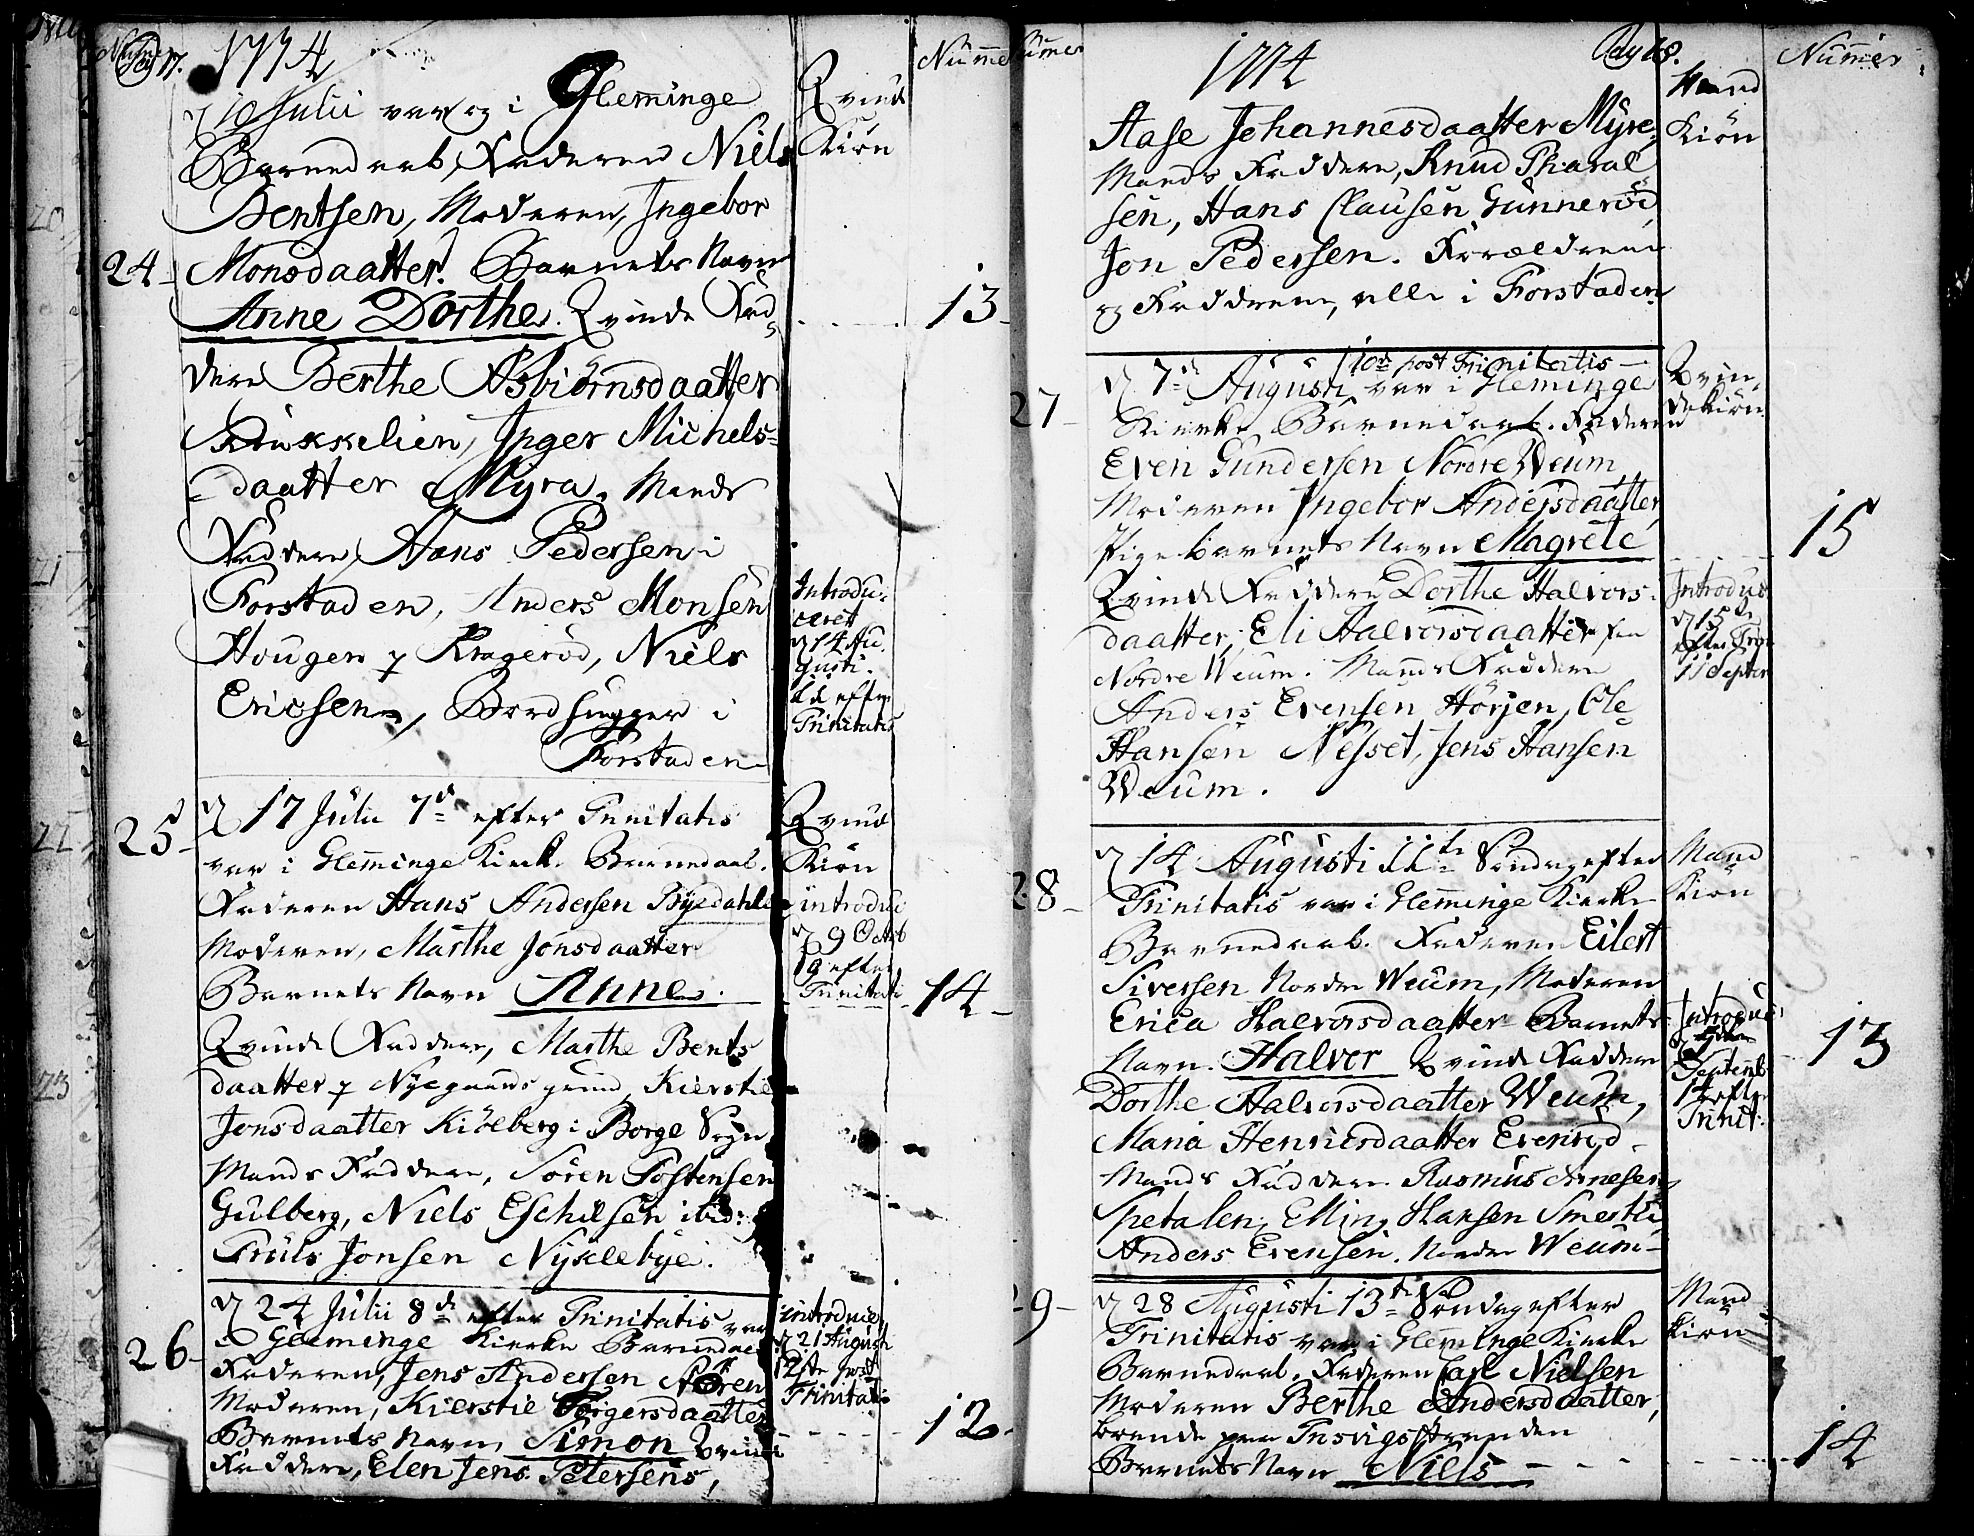 Pag 17.
1774
Numme
d 10 Julii var og i Glemminge
Qvind
Kiøn
Barnedaab, Faderen Niels
Bentsen, Moderen, Ingebor
24 Monsdaatter. Barnets Navn
Anne Dorthe. Qvinde Fad-
13
dere Berthe Asbiørnsdaatter
Inger Michels-
daatter Myra. Mands
Faddere, Hans Pedersen i
Forstaden, Anders Monsen
Hougen p Kragerød, Niels
Ericsen, Bordhugger i
Forstaden
Introdu-
ceret
d 14 Au-
gusti.
11 de efter
Trinitatis
25 d 17 Julii 7de efter Trinitatis
var i Glemminge Kirck. Barnedaab.
Faderen Hans Andersen Byedahle
Moderen, Marthe Jonsdaatter
Barnets Navn Anne.
14
Qvind
Kiøn
introduc
d 9 Octob
19 efter
Trinitati
Qvinde Faddere, Marthe Bents
daatter p Nyegaards grund, Kierstie
Jonsdaatter Kiølberg i Borge Sogn
Mands Faddere, Søren Tostensen
Gulberg, Niels Eschilsen ibid:
Truls Jonsen Nyklebye.
26 d 24 Julii 8de efter Trinitatis var
i Glemminge Kierke Barnedaab
Faderen, Jens Andersen
Moderen, Kierstie Torgersdaatter
Barnets Navn, Simon Qvinde
12
Faddere, Elen Jens Petersens,
introduc
d 21 Augusti
12te post
Trinitati
1774
Pag 18.
Nummer
Aase Johannesdaatter Myre,
Mand
Kiøn
Mands Faddere, Knud Tharal
sen, Hans Clausen Gunnerød,
Jon Pedersen. Forældrene
og Fadderne, alle i Forstaden
10de post Trinitatis
27 d 7de Augusti var i Gleminge
Qvin-
dekiøn
Kierke Barnedaab. Faderen
Even Gundersen Nordre Weum
Moderen Ingebor Andersdaatter,
Pigebarnets Navn Magrete
15
Qvinde Faddere Dorthe Halvors-
daatter, Eli Halvorsdaatter fra
Nordre Weum. Mands Faddere
Anders Evensen Hørjen, Ole
Hansen Nesset, Jens Hansen
Weum.
Introduc
d 15de
efter Trin
11 Septem
28 d 14 Augusti 11te Søndag efter
Trinitatis var i Glemminge Kierke
Mand
Kiøn
Barnedaab. Faderen Eilert
Siversen Nordre Weum, Moderen
Erica Halvorsdaatter Barnets
Navn. Halvor Qvinde Faddere
13
Dorthe Halvorsdaatter Weum,
Maria Henricsdaatter Evenrød.
Mands Faddere Rasmus Arnesen
Spetalen, Elling Hansen Smertu
Anders Evensen. Nordre Weum-
Introduc
Septemb
14 efter
Trinit:
29 d 28 Augusti 13de Søndag efter
Trinitatis var i Glemminge Kierke
Mand
Kiøn
Barnedaab. Faderen Carl Nielsen
Moderen Berthe Andersdaatter,
boende paa Trosvigs Stranden
Barnets Navn Niels
14